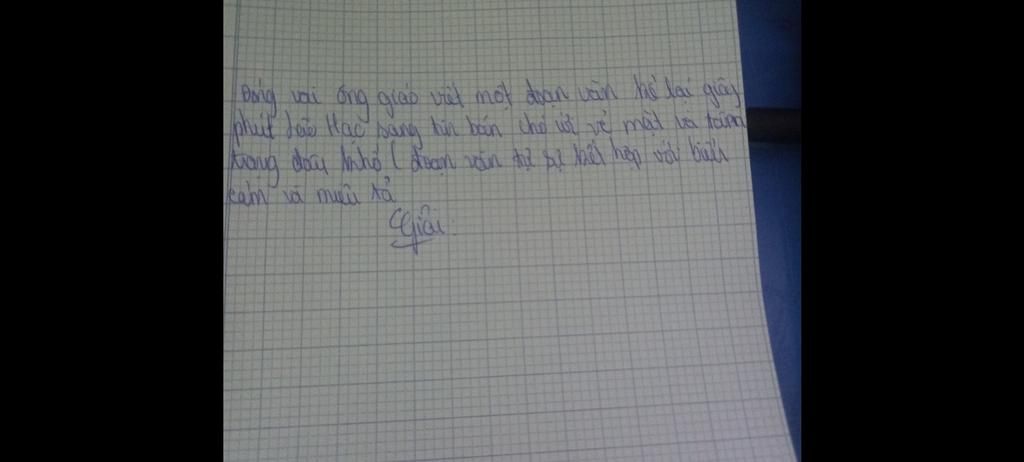 Đóng vai ông giáo viết một đoạn văn kể lại giây
phút Lão Hạc sang tin bán chó với vẻ mặt và tâm
trạng đau khổ ( đoạn văn tự sự kết hợp với biểu
cảm và miêu tả
Giải: